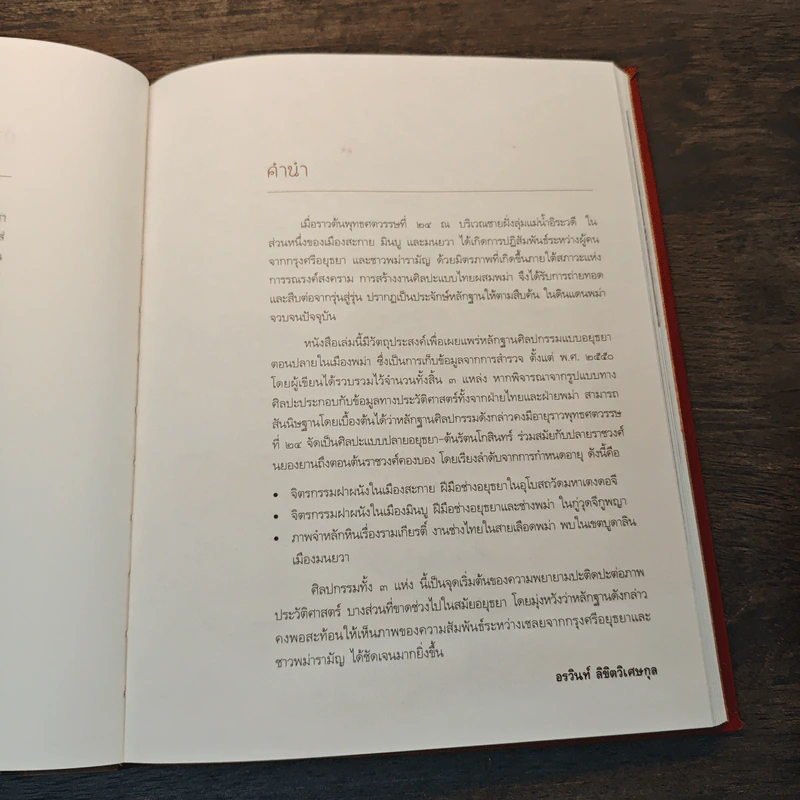 คำนำ
เมื่อราวต้นพุทธศตวรรษที่ ๒๔ ณ บริเวณชายฝั่งลุ่มแม่น้ำอิระวดี ใน
ส่วนหนึ่งของเมืองสะกาย มินบู และมนยวา ได้เกิดการปฏิสัมพันธ์ระหว่างผู้คน
จากกรุงศรีอยุธยา และชาวพม่ารามัญ ด้วยมิตรภาพที่เกิดขึ้นภายใต้สภาวะแห่ง
การรณรงค์สงคราม การสร้างงานศิลปะแบบไทยผสมพม่า จึงได้รับการถ่ายทอด
และสืบต่อจากรุ่นสู่รุ่น ปรากฏเป็นประจักษ์หลักฐานให้ตามสืบค้น ในดินแดนพม่า
จวบจนปัจจุบัน
หนังสือเล่มนี้มีวัตถุประสงค์เพื่อเผยแพร่หลักฐานศิลปกรรมแบบอยุธยา
ตอนปลายในเมืองพม่า ซึ่งเป็นการเก็บข้อมูลจากการสำรวจ ตั้งแต่ พ.ศ. ๒๕๕๐
โดยผู้เขียนได้รวบรวมไว้จำนวนทั้งสิ้น ๓ แหล่ง หากพิจารณาจากรูปแบบทาง
ศิลปะประกอบกับข้อมูลทางประวัติศาสตร์ทั้งจากฝ่ายไทยและฝ่ายพม่า สามารถ
สันนิษฐานโดยเบื้องต้นได้ว่าหลักฐานศิลปกรรมดังกล่าวคงมีอายุราวพุทธศตวรรษ
ที่ ๒๔ จัดเป็นศิลปะแบบปลายอยุธยา-ต้นรัตนโกสินทร์ ร่วมสมัยกับปลายราชวงศ์
นยองยานถึงตอนต้นราชวงศ์คองบอง โดยเรียงลำดับจากการกำหนดอายุ ดังนี้คือ
• จิตรกรรมฝาผนังในเมืองสะกาย ฝีมือช่างอยุธยาในอุโบสถวัดมหาเตงดอจี
• จิตรกรรมฝาผนังในเมืองมินบู ฝีมือช่างอยุธยาและช่างพม่า ในกู่วุดจีกูพญา
• ภาพจำหลักหินเรื่องรามเกียรติ์ งานช่างไทยในสายเลือดพม่า พบในเขตบูดาลิน
เมืองมนยวา
ศิลปกรรมทั้ง ๓ แห่ง นี้เป็นจุดเริ่มต้นของความพยายามปะติดปะต่อภาพ
ประวัติศาสตร์ บางส่วนที่ขาดช่วงไปในสมัยอยุธยา โดยมุ่งหวังว่าหลักฐานดังกล่าว
คงพอสะท้อนให้เห็นภาพของความสัมพันธ์ระหว่างเชลยจากกรุงศรีอยุธยาและ
ชาวพม่ารามัญ ได้ชัดเจนมากยิ่งขึ้น
อรวินท์ ลิขิตวิเศษกุล